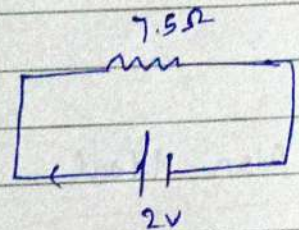 7.5Ω
2v